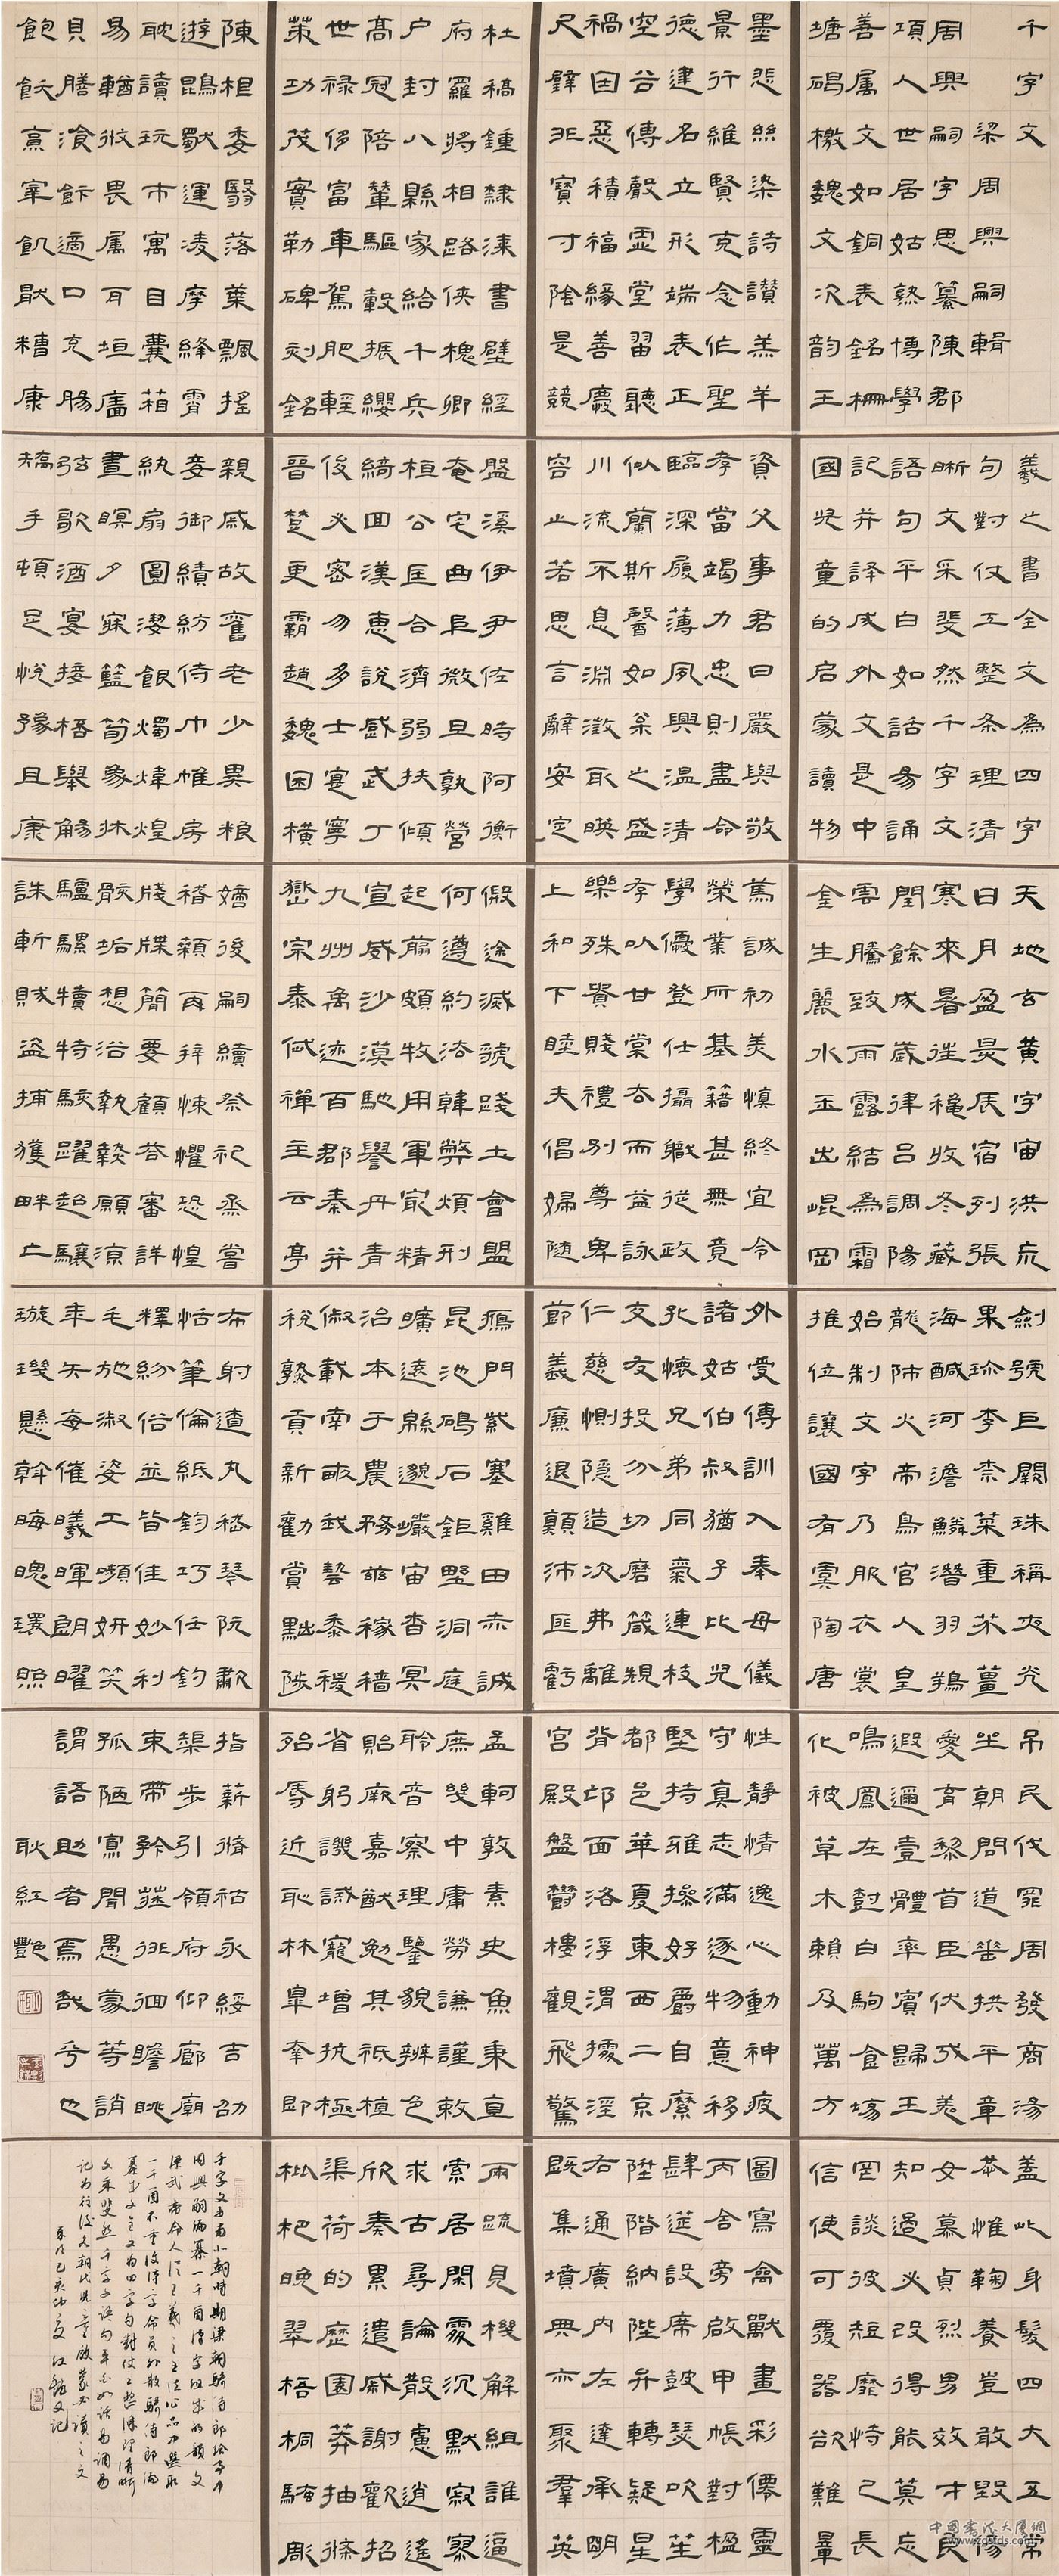 千字文
梁周興嗣輯
周興嗣字思纂陳郡
項人世居姑熟博學
善属文如銅表銘柵
塘碣檄魏文次韵王
羲之書全文為四字
句對仗工整条理清
晰文采斐然千字文
語句平白如話易誦
記并譯成外文是中
國兴童的启蒙讀物
天地玄黄宇宙洪荒
日月盈昃辰宿列張
寒來暑往穐收冬藏
閏餘成歲律吕調陽
雲騰致雨露結為霜
金生麗水玉出崐岡
劍號巨闕珠稱夜光
果珍李柰菜重芥薑
海醎河澹鱗潛羽翔
龍師火帝鳥官人皇
始制文字乃服衣裳
推位讓國有虞陶唐
吊民伐罪周發商湯
坐朝問道垂拱平章
愛育黎首臣伏戎羌
遐邇壹體率賓歸王
鳴鳳在樹白駒食場
化被草木賴及萬方
蓋此身髮四大五常
恭惟鞠養豈敢毀傷
女慕貞烈男效才良
知過必改得能莫忘
罔談彼短靡恃己長
信使可覆器欲難量
墨悲絲染詩讃羔羊
景行維賢克念作聖
德建名立形端表正
空谷傳聲虛堂習聽
禍因惡積福緣善慶
尺璧非寶寸陰是競
資父事君曰嚴與敬
孝當竭力忠則盡命
臨深履薄夙興温凊
似蘭斯馨如松之盛
川流不息淵澂取暎
容止若思言辭安定
篤誠初美慎終宜令
榮業所基籍甚無竟
學優登仕攝職從政
存以甘棠去而益詠
樂殊貴賤禮別尊卑
上和下睦夫倡婦随
外受傅訓入奉母儀
諸姑伯叔猶子比兒
孔懷兄弟同氣連枝
交友投分切磨箴規
仁慈惻隐造次弗離
節義廉退顛沛匪虧
性靜情逸心動神疲
守真志滿逐物意移
堅持雅操好爵自縻
都邑華夏東西二京
背邙面洛浮渭據涇
宮殿盤鬱樓觀飛驚
圖寫禽獸畫彩僊靈
丙舍旁啟甲帳對楹
肆筵設席鼓瑟吹笙
陞階納陛弁轉疑星
右通廣内左達承明
既集墳典亦聚羣英
杜稿鍾隸漆書壁經
府羅将相路侠槐卿
户封八縣家給千兵
高冠陪輦驅轂振纓
世禄侈富車駕肥輕
策功茂實勒碑刻銘
盤溪伊尹佐時阿衡
奄宅曲阜微旦孰營
桓公匡合濟弱扶傾
綺回漢惠說感武丁
俊乂密勿多士寔寧
晉楚更霸趙魏困橫
假途滅虢踐土會盟
何遵約法韓弊煩刑
起翦頗牧用軍冣精
宣威沙漠馳譽丹青
九州禹迹百郡秦并
嶽宗泰岱禪主云亭
鴈門紫塞雞田赤誠
昆池碣石鉅野洞庭
曠遠緜邈巖岫杳冥
治本于農務兹稼穡
俶載南畝我藝黍稷
税熟貢新勸賞黜陟
孟軻敦素史魚秉直
庶幾中庸勞謙謹敕
聆音察理鑒貌辨色
貽厥嘉猷勉其祗植
省躬譏誡寵增抗極
殆辱近恥林皋幸即
兩疏見機解組誰逼
索居閑處沉默寂寥
求古尋論散慮逍遙
欣奏累遣慼謝歡招
渠荷的歷園莽抽條
枇杷晚翠梧桐蚤彫
陳根委翳落葉飄搖
遊鵾獨運凌摩絳霄
耽讀玩市寓目囊箱
易輶攸畏属耳垣牆
具膳湌飯適口充腸
飽飫烹宰飢厭糟糠
親戚故舊老少異粮
妾御績紡侍巾帷房
紈扇圓潔銀燭煒煌
晝瞑夕寐籃筍象牀
弦歌酒宴接梧舉觴
矯手頓足悦豫且康
嫡後嗣續祭祀烝嘗
稽顙再拜悚懼恐惶
牋牒簡要顧荅審詳
骸垢想浴執熱願涼
驢騾犢特駭躍超驤
誅斬賊盜捕獲畔亡
布射遼丸嵇琴阮歗
恬筆倫紙鈞巧任釣
釋紛俗並皆佳妙利
毛施淑姿工嚬妍笑
年矢每催曦暉朗曜
璇璣懸斡晦魄環照
指薪脩祜永綏吉劭
榘步引領府仰廊廟
束帶矜莊徘徊瞻眺
孤陋寡聞愚蒙等誚
謂語助者焉哉乎也
耿紅艷
中國書法大展網